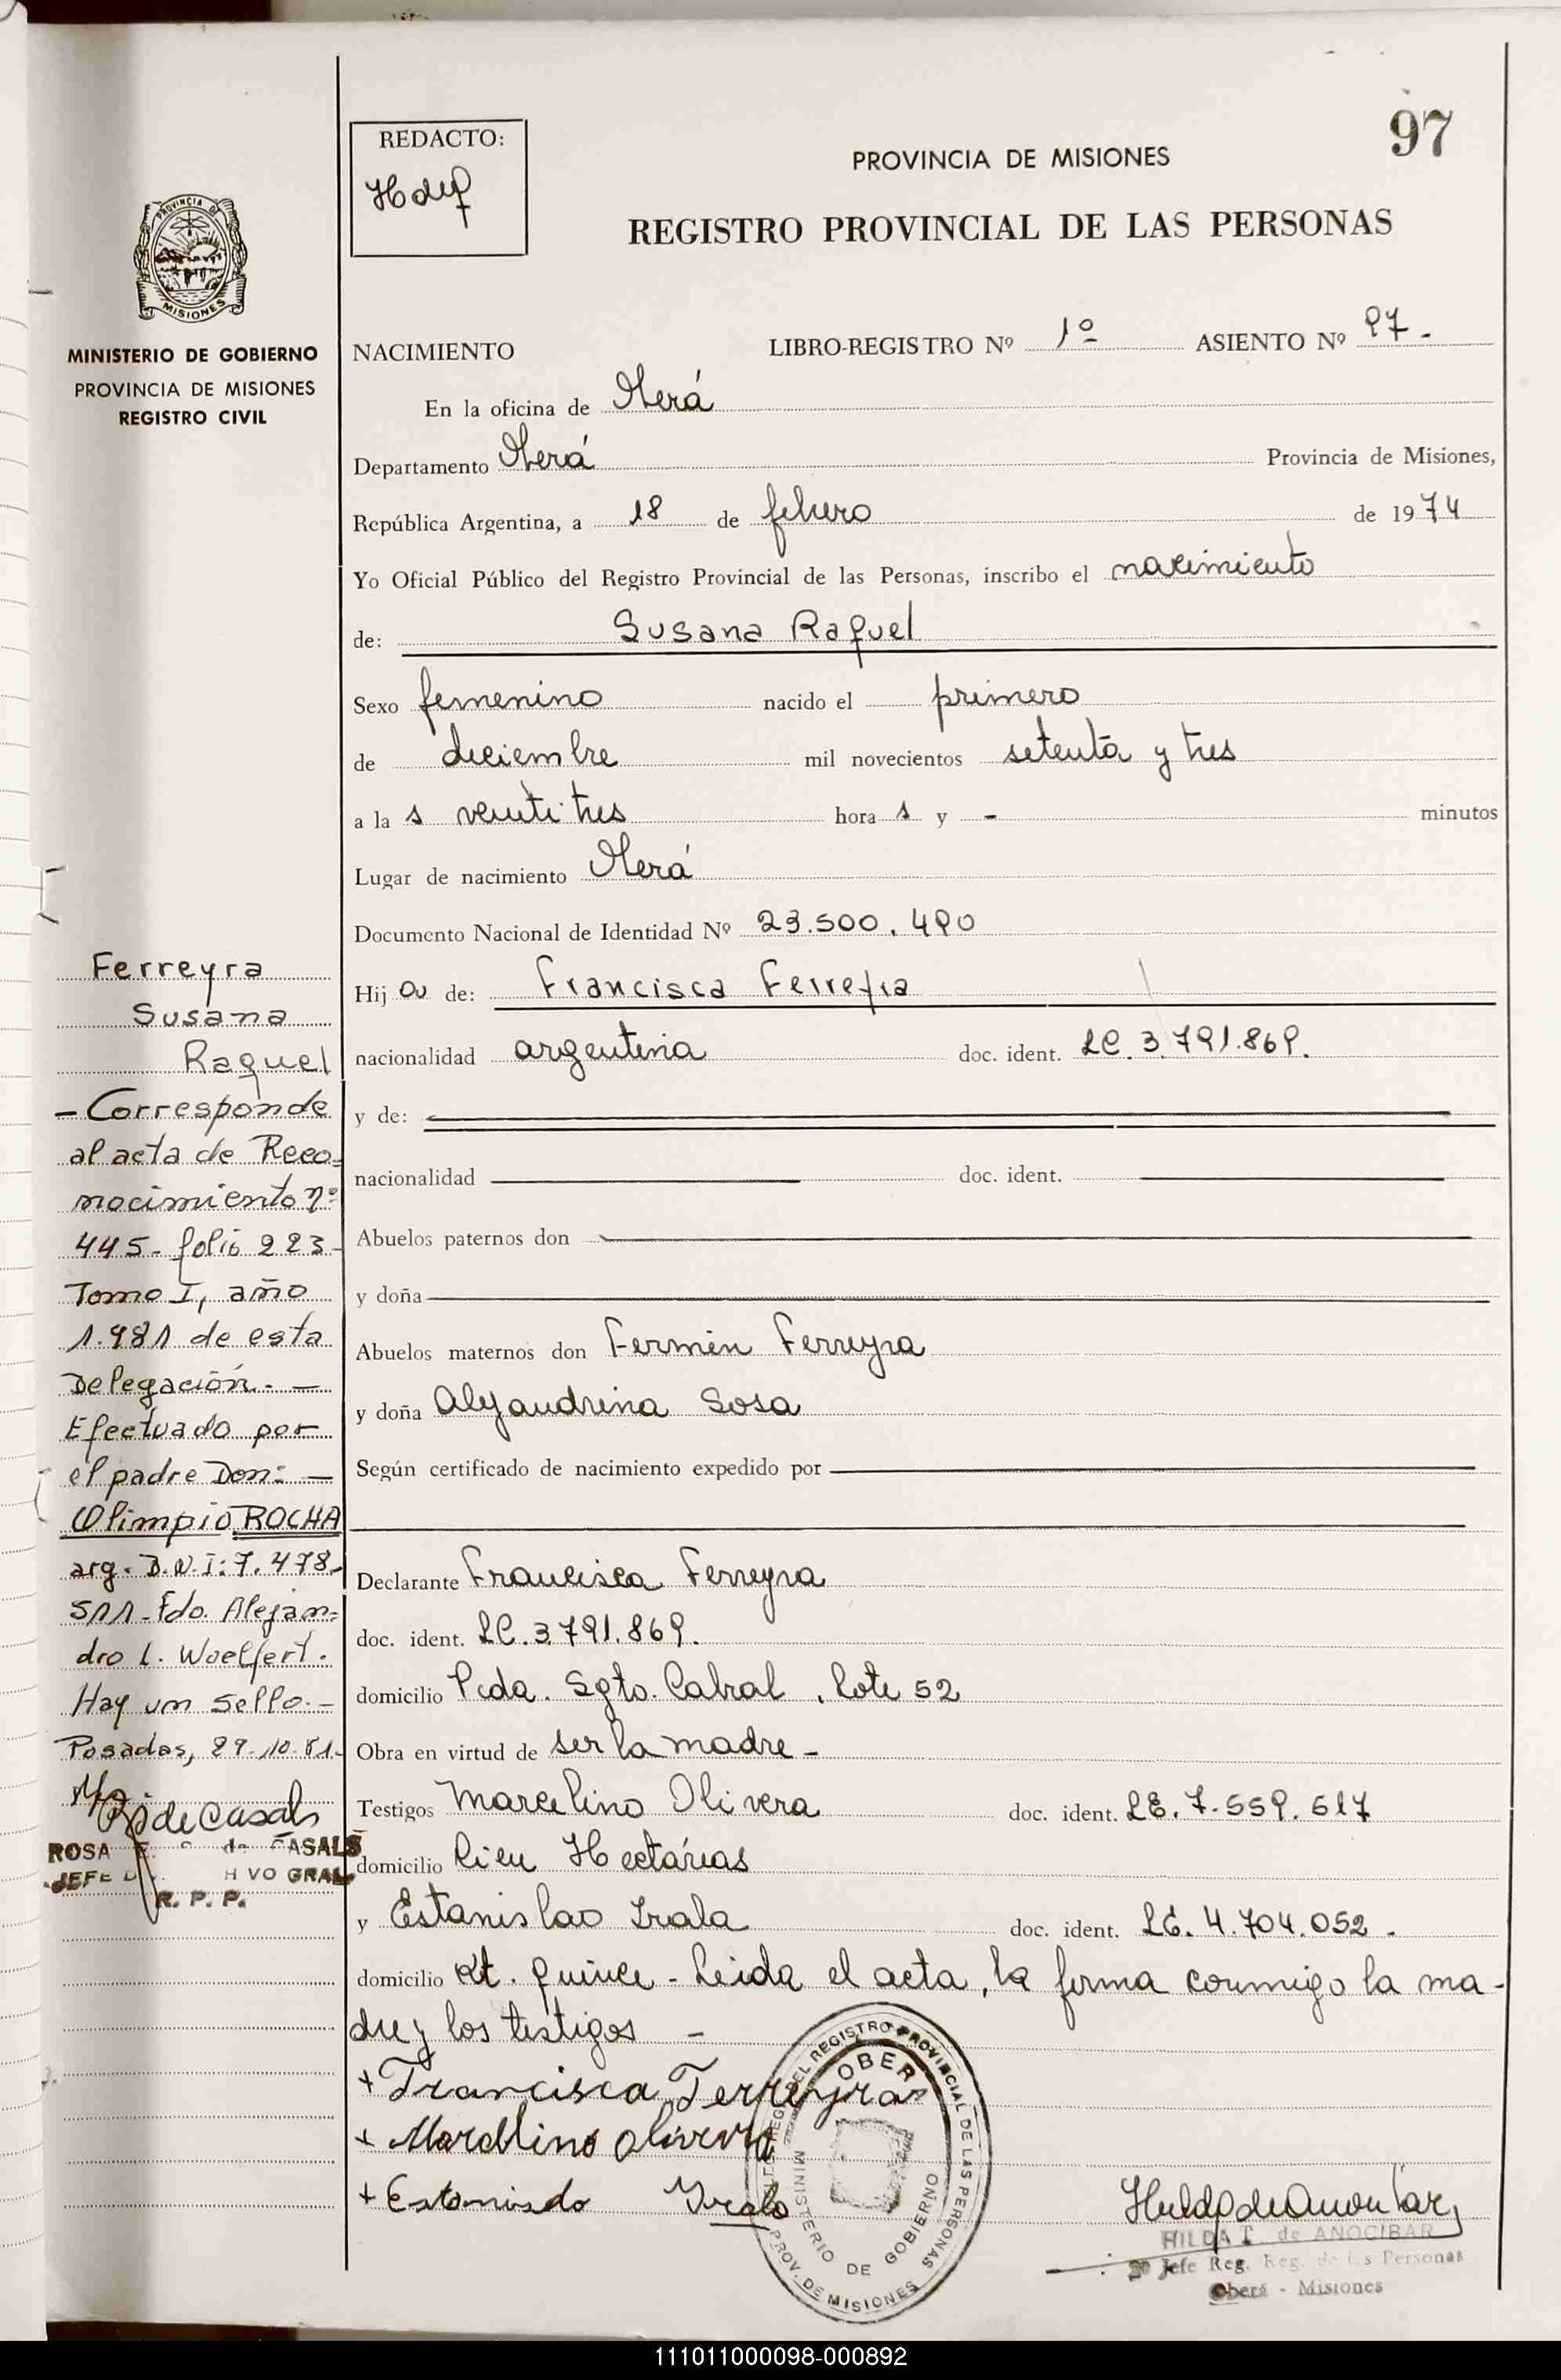 97
REDACTO:
PROVINCIA DE MISIONES
REGISTRO PROVINCIAL DE LAS PERSONAS
PROVINCIA DE
MISIONES
MINISTERIO DE GOBIERNO
PROVINCIA DE MISIONES
REGISTRO CIVIL
NACIMIENTO LIBRO-REGISTRO Nº 1º ASIENTO Nº 97.-
En la oficina de Oberá
Departamento Oberá Provincia de Misiones,
República Argentina, a 18 de febrero de 1974
Yo Oficial Público del Registro Provincial de las Personas, inscribo el nacimiento
de: Susana Raquel
Sexo femenino nacido el primero
de diciembre mil novecientos setenta y tres
a la s veinti tres hora s y - minutos
Lugar de nacimiento Oberá
Documento Nacional de Identidad Nº 23.500.490
Hij a de: Francisca Ferreyra
nacionalidad argentina doc. ident. LC. 3.791.869.
y de:
nacionalidad doc. ident.
Abuelos paternos don
y doña
Abuelos maternos don Fermín Ferreyra
y doña Alejandrina Sosa
Según certificado de nacimiento expedido por
Declarante Francisca Ferreyra
doc. ident. LC. 3.791.869.
domicilio Pcda. Sgto. Cabral, lote 52
Obra en virtud de ser la madre -
Testigos Marcelino Olivera doc. ident. LE. 7.559.517
domicilio Cien Hectáreas
y Estanislao Irala doc. ident. LE. 4.704.052.
domicilio Kt. quince - Leida el acta, la firma conmigo la ma-
dre y los testigos -
+ Francisca Ferreyra
+ Marcelino Olivera
+ Estanislao Irala
Ferreyra
Susana
Raquel
- Corresponde
al acta de Reco-
nocimiento nº
445- folio 223-
Tomo I, año
1.981 de esta
Delegación. -
Efectuado por
el padre Don: -
Olimpio ROCHA
arg. D.N.I: 7.478-
511- Fdo. Alejan=
dro L. Woelfert.
Hay un sello. -
Posadas, 29-10-81.-
de Casals
ROSA de CASALS
JEFE GRAL
R. P. P.
REGISTRO PROVINCIAL DE LAS PERSONAS
PROV. DE MISIONES
OBERA
MINISTERIO DE GOBIERNO
HILDA T. de ANOCIBAR
Jefe Reg. Reg. de las Personas
Oberá - Misiones
111011000098-000892